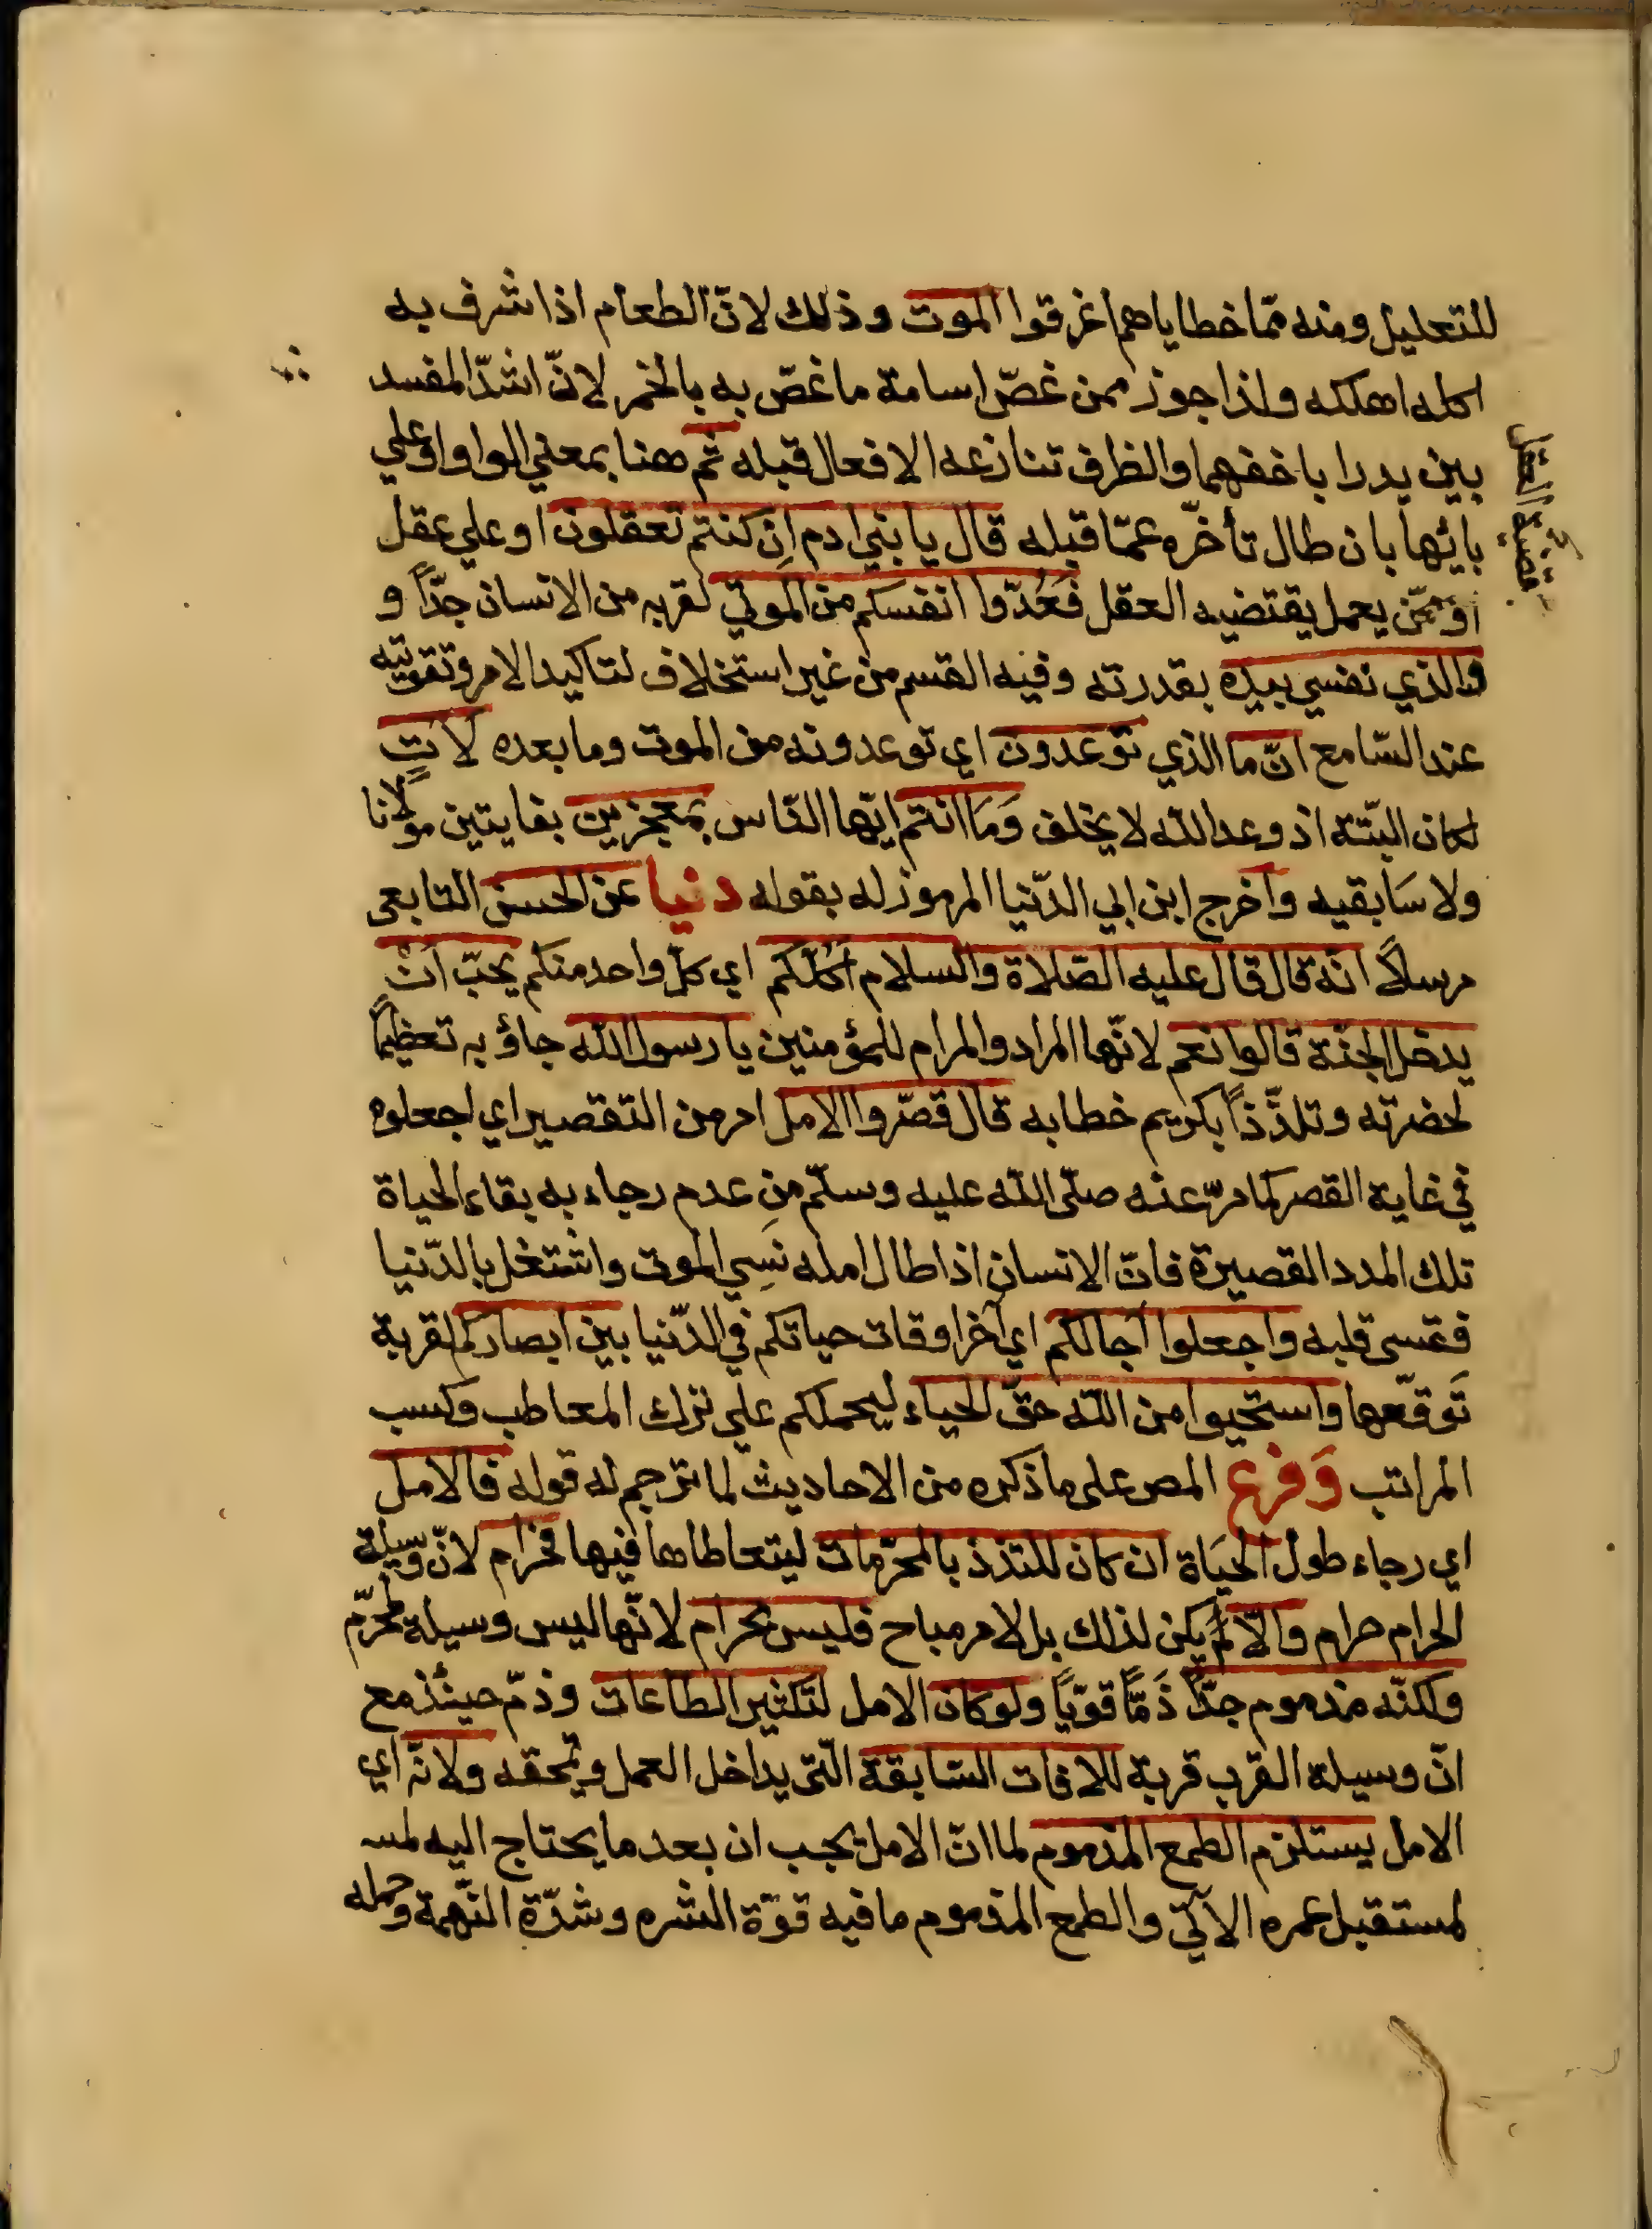 للتعليل ومنه مما خطاياهم اغرقوا الموت وذلك لانّ الطعام اذا شرف به
اكله اهلكه ولذا جوز ممن غصّ اسامة ما غصّ به بالخمر لانّ اشدّ المفسد
بين يدرا باخفهما والظرف تنازعه الافعال قبله ثم هنا بمعني الواو او علي
بابها بان طال تأخّره عمّا قبله قال يا بني ادم اِن كنتم تعقلون او علي عقل
او ممّن يعمل يقتضيه العقل فَعُدّوا انفسكم من الموتي لقربه من الانسان جدّاً و
والذي نفسي بيده بقدرته وفيه القسم من غير استخلاف لتاكيد الامر وتقويته
عند السّامع انّ ما الذي توعدون اي توعدونه من الموت وما بعده لاتٍ
لكان البتّة اذ وعد الله لا يخلف وَمَا انتم ايّها النّاس بمعجزين بفايتين مولانا
ولا سَابقيه واخرج ابن ابي الدّنيا المرموز له بقوله دنيا عن الحسن التابعي
مرسلاً انّه قال قال عليه الصّلاة والسلام اكلّكم اي كلّ واحد منكم يحبّ انْ
يدخل الجنّة قالوا نعم لانّها المراد والمرام للمؤمنين يا رسول الله جاؤ به تعظيماً
لحضرته وتلذّذاً بكريم خطابه قال قصّروا الامل امر من التقصير اي اجعلوه
في غاية القصر كما مرّ عنه صلّى الله عليه وسلّم مِن عدم رجاءبه بقاء الحياة
تلك المدد القصيرة فانّ الانسان اذا طال امله نسِي الموت واشتغل بالدّنيا
فقسى قلبه واجعلوا آجالكم اي آخر اوقات حياتكم في الدّنيا بين ابصاركم لقربة
تَوقّعها واستحيوا من الله حقّ الحياء ليحملكم علي ترك المعاطب وكسب
المراتب وَفرع المص على ما ذكره من الاحاديث لما ترجم له قوله فالامل
اي رجاء طول الحيَاة ان كان للتذذ بالمحرّمات ليتعاطاها فيها فحرام لانّ وسيلة
الحرام حرام والّا لم يكن لذلك بل لامر مباح فليس بحرام لانّها ليس وسيلة لمحرّم
ولكنّه مذموم جدّاً ذَمًّا قويّاً ولو كان الامل لتكثير الطاعات وذمّ حينئذ مع
انّ وسيلة القرب قربة للافات السّابقة الّتي يداخل العمل ويمحقه ولانّه اي
الامل يستلزم الطمع المذموم لما انّ الامل يجب ان يعد ما يحتاج اليه لمس
لمستقبل عمره الآتي والطمع المذموم ما فيه قوّة الشره وشدّة النّهمة وحمله